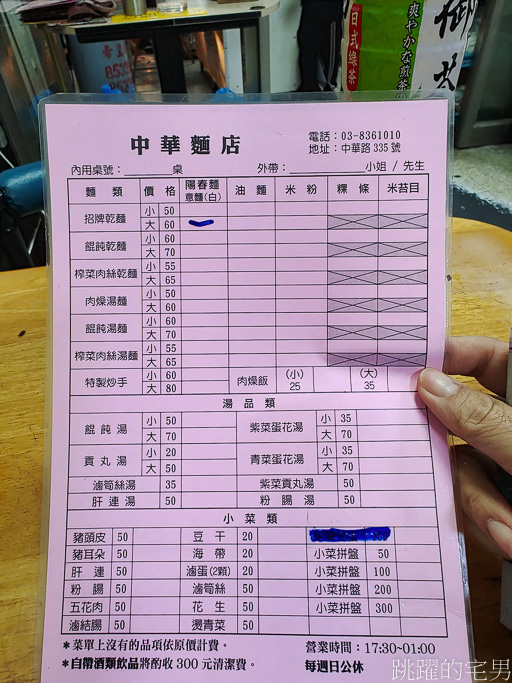 中華麵店
電話：03-8361010
地址：中華路335號
內用桌號： 桌 外帶： 小姐 / 先生
麵 類 價 格 陽春麵 意麵(白) 油 麵 米 粉 粿 條 米苔目
招牌乾麵 小 50 大 60
餛飩乾麵 小 60 大 70
榨菜肉絲乾麵 小 55 大 65
肉燥湯麵 小 50 大 60
餛飩湯麵 小 60 大 70
榨菜肉絲湯麵 小 55 大 65
特製炒手 小 60 大 80 肉燥飯 (小) 25 (大) 35
湯 品 類
餛飩湯 小 50 大 70 紫菜蛋花湯 小 35 大 70
貢丸湯 小 20 大 50 青菜蛋花湯 小 35 大 70
滷筍絲湯 35 紫菜貢丸湯 50
肝連湯 50 粉腸湯 50
小 菜 類
豬頭皮 50 豆干 20
豬耳朵 50 海帶 20 小菜拼盤 50
肝連 50 滷蛋(2顆) 20 小菜拼盤 100
粉腸 50 滷筍絲 50 小菜拼盤 200
五花肉 50 花生 50 小菜拼盤 300
滷結腸 50 燙青菜 50
*菜單上沒有的品項依原價計費。 營業時間：17:30~01:00
*自帶酒類飲品將酌收300元清潔費。 每週日公休
日式綠茶
爽やかな煎茶
跳躍的宅男